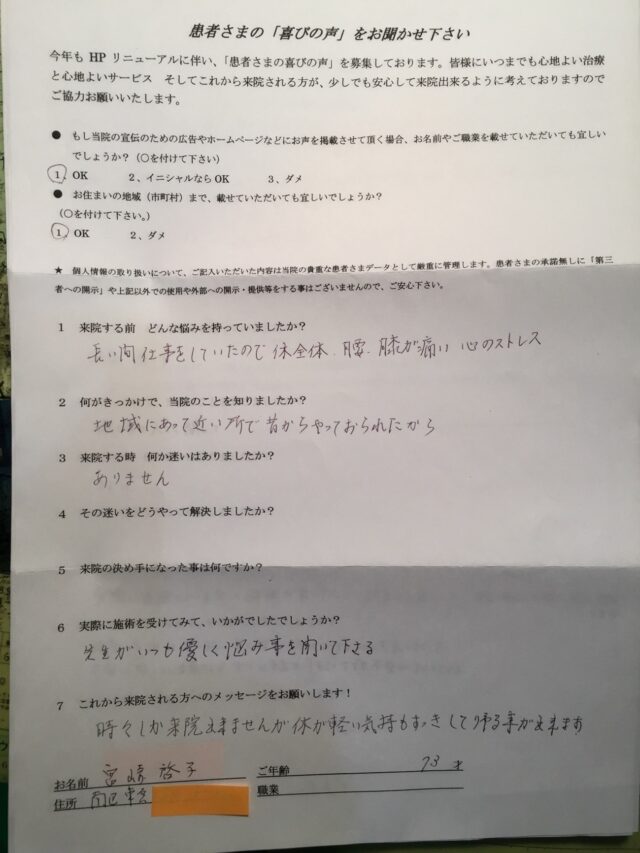 患者さまの「喜びの声」をお聞かせ下さい
今年も HP リニューアルに伴い、「患者さまの喜びの声」を募集しております。皆様にいつまでも心地よい治療
と心地よいサービス そしてこれから来院される方が、少しでも安心して来院出来るように考えておりますので
ご協力お願いいたします。
● もし当院の宣伝のための広告やホームページなどにお声を掲載させて頂く場合、お名前やご職業を載せていただいても宜しい
でしょうか？（○を付けて下さい）
1、OK 2、イニシャルなら OK 3、ダメ
● お住まいの地域（市町村）まで、載せていただいても宜しいでしょうか？
（○を付けて下さい。）
1、OK 2、ダメ
★ 個人情報の取り扱いについて、ご記入いただいた内容は当院の貴重な患者さまデータとして厳重に管理します。患者さまの承諾無しに「第三
者への開示」や上記以外での使用や外部への開示・提供等をする事はございませんので、ご安心下さい。
1 来院する前 どんな悩みを持っていましたか？
長い間仕事をしていたので体全体、腰、膝が痛い 心のストレス
2 何がきっかけで、当院のことを知りましたか？
地域にあって近い所で昔からやっておられたから
3 来院する時 何か迷いはありましたか？
ありません
4 その迷いをどうやって解決しましたか？
5 来院の決め手になった事は何ですか？
6 実際に施術を受けてみて、いかがでしたでしょうか？
先生がいつも優しく悩み事を聞いて下さる
7 これから来院される方へのメッセージをお願いします！
時々しか来院出来ませんが体が軽い気持もすっきりして帰る事が出来ます
お名前 宮崎 啓子 ご年齢 73 才
住所 南区 職業